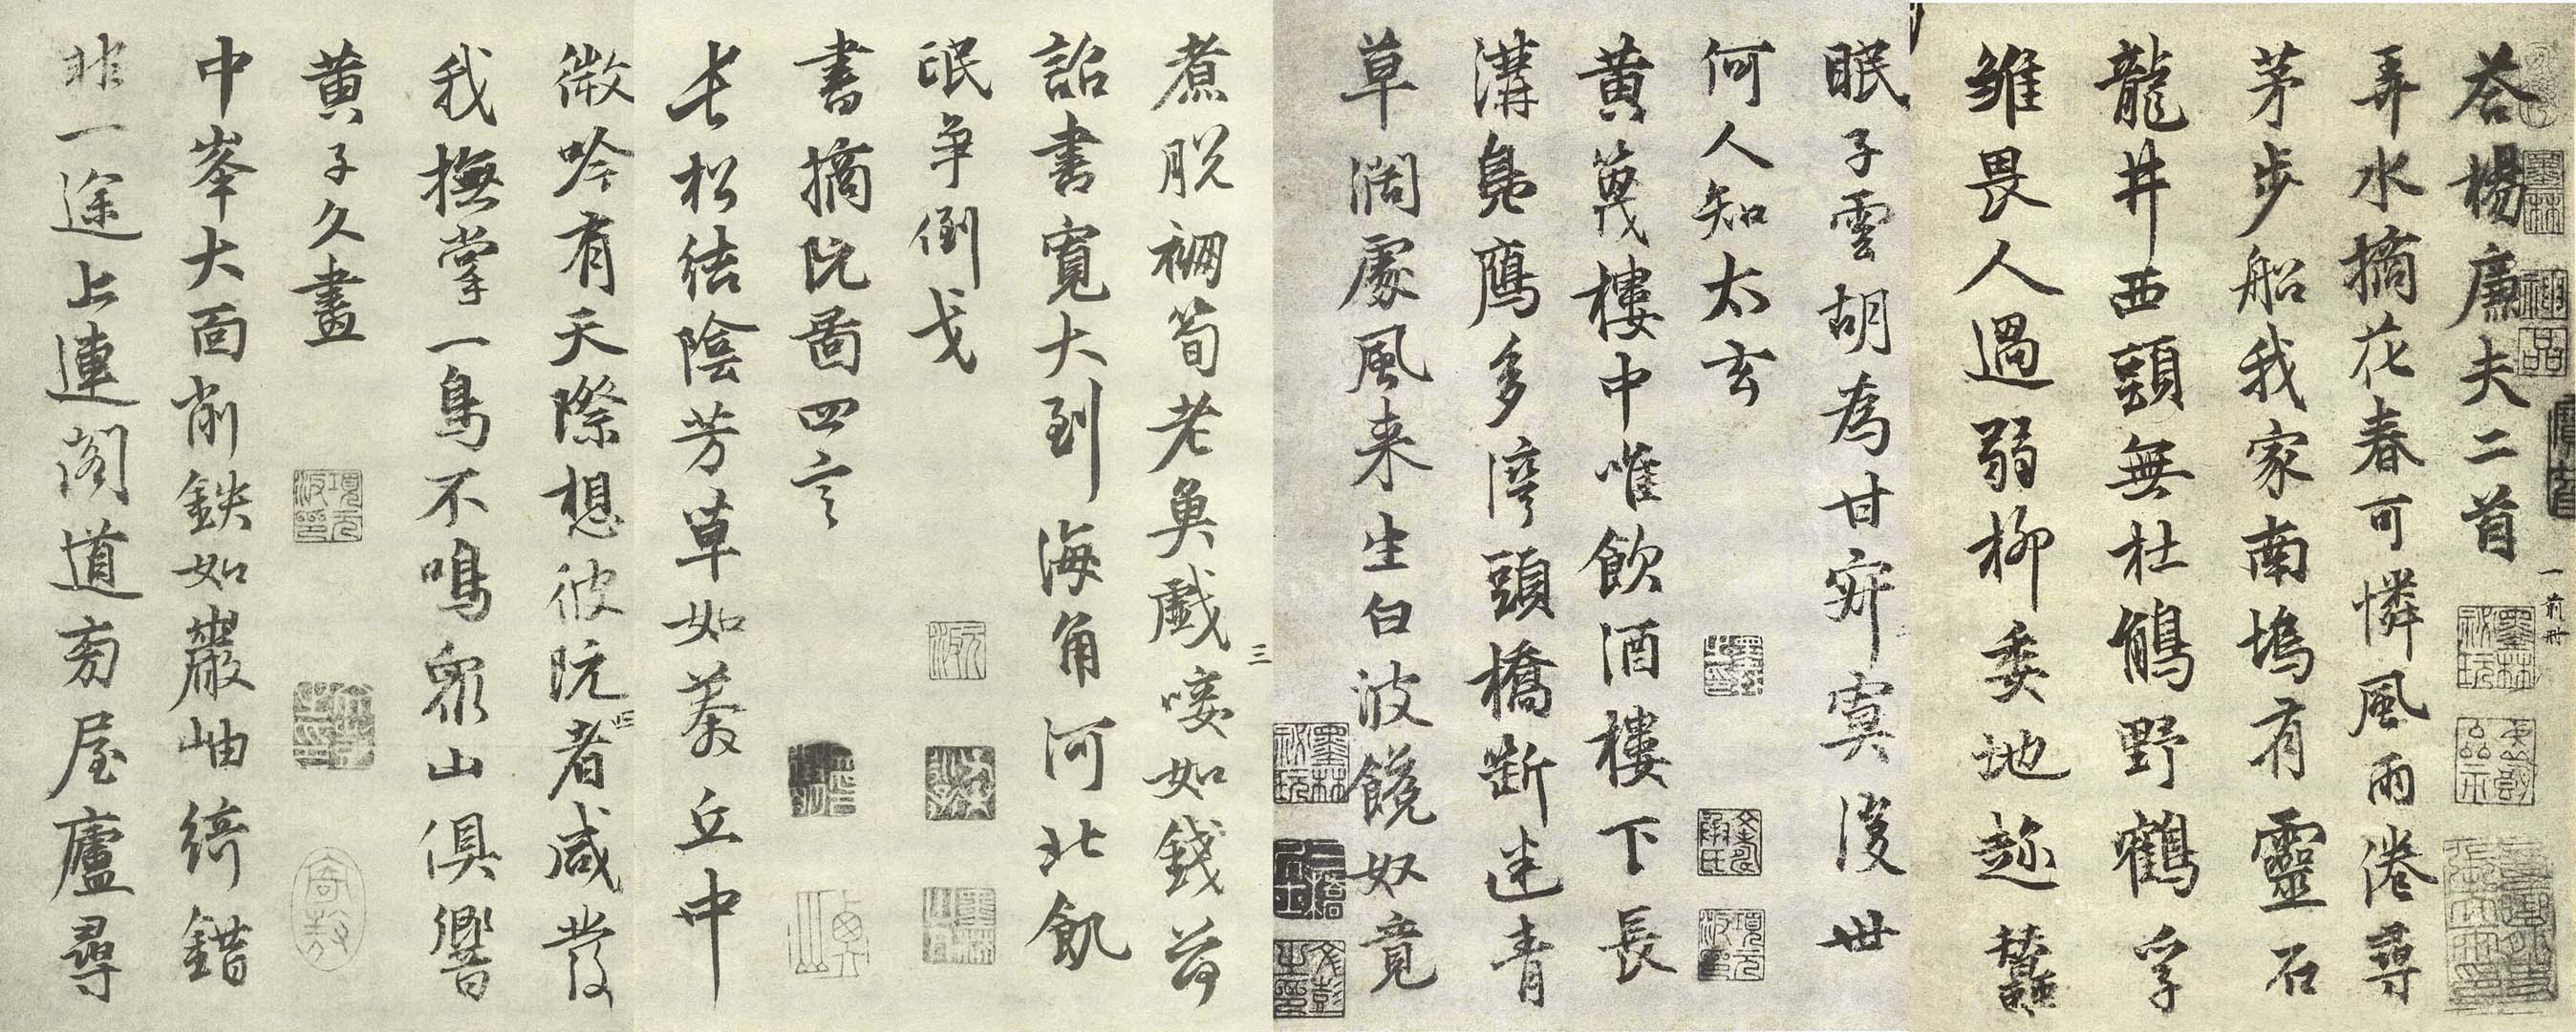 答楊廉夫二首
弄水摘花春可憐風雨港尋
茅步船我家南塢有靈石
龍井西頭無杜鵑野鶴孚
雏畏人過弱柳委地趂蠶
眠子雲胡為甘寂寞後世
何人知太玄
黄篾樓中唯飲酒樓下長
溝鳧鴈多灣頭橋斷迷青
草闊處風来生白波饒奴竟
煮脱裯筍老奥戲唼如錢荷
詔書寬大到海角河北飢
氓争倒戈
書摘阮啚四言
長松結陰芳草如蓁丘中
微吟有天際想彼阮者咸發
我撫掌一鳥不鳴衆山俱響
黄子久畫
中峯大面削鉄如巖岫綺錯
非一途上連閣道旁屋廬尋